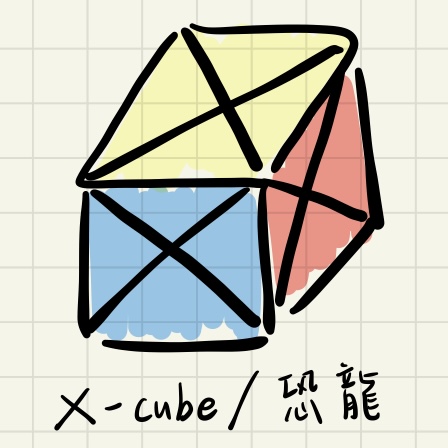 X-cube/恐龍